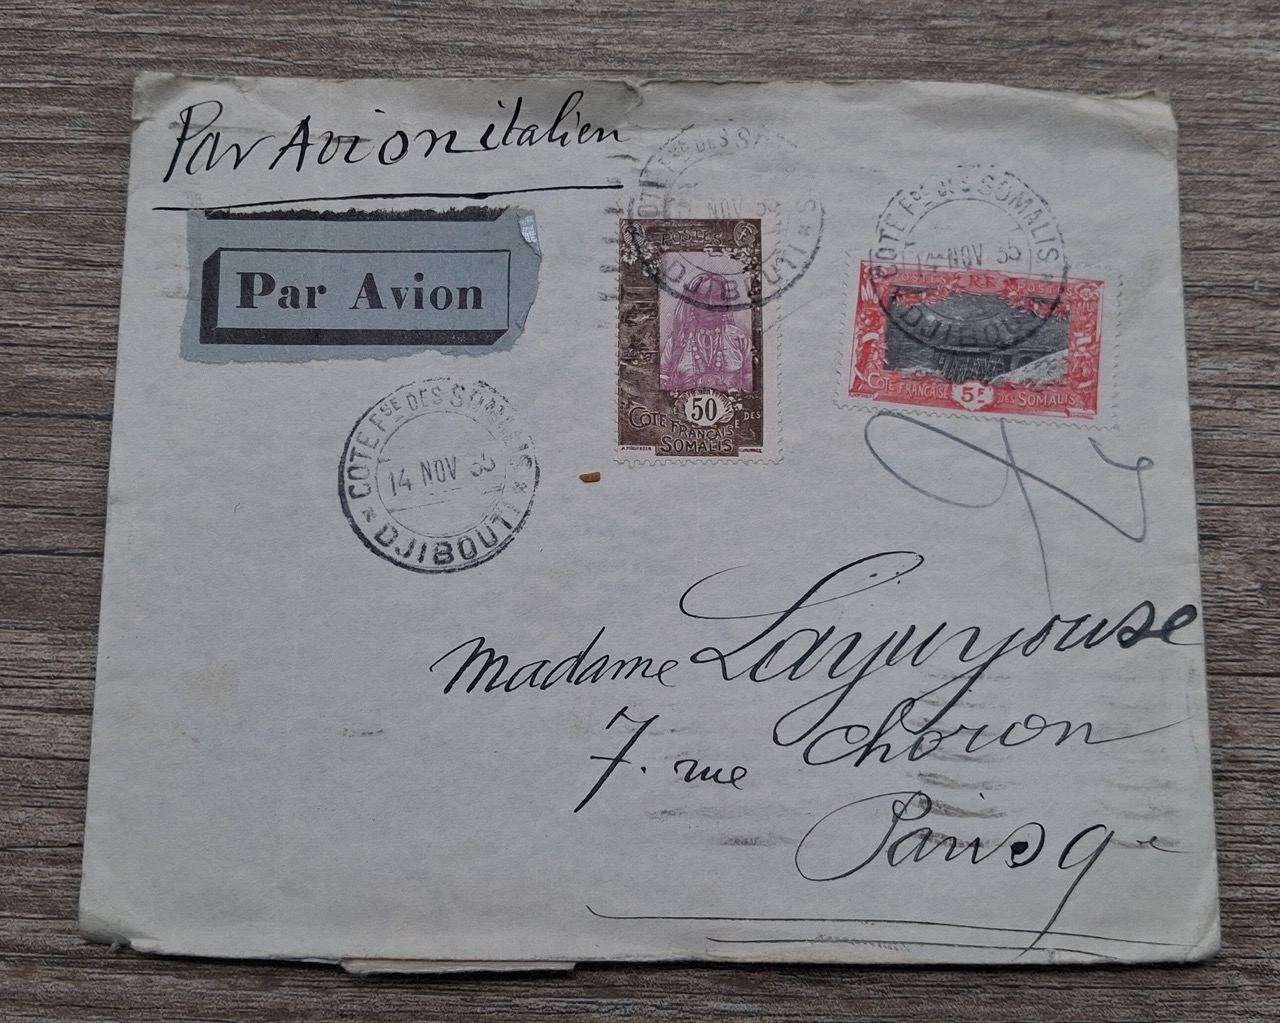 Par Avion italien
Par Avion
COTE FSE DES SOMALIS
14 NOV 35
DJIBOUTI
NOV 35
DJIBOUTI
POSTES
50
COTE FRANÇAISE DES
SOMALIS
COTE FSE DES SOMALIS
14 NOV 35
DJIBOUTI
POSTES RF POSTES
5F
COTE FRANÇAISE DES SOMALIS
Madame Layuyouse
7. rue Choron
Paris 9e